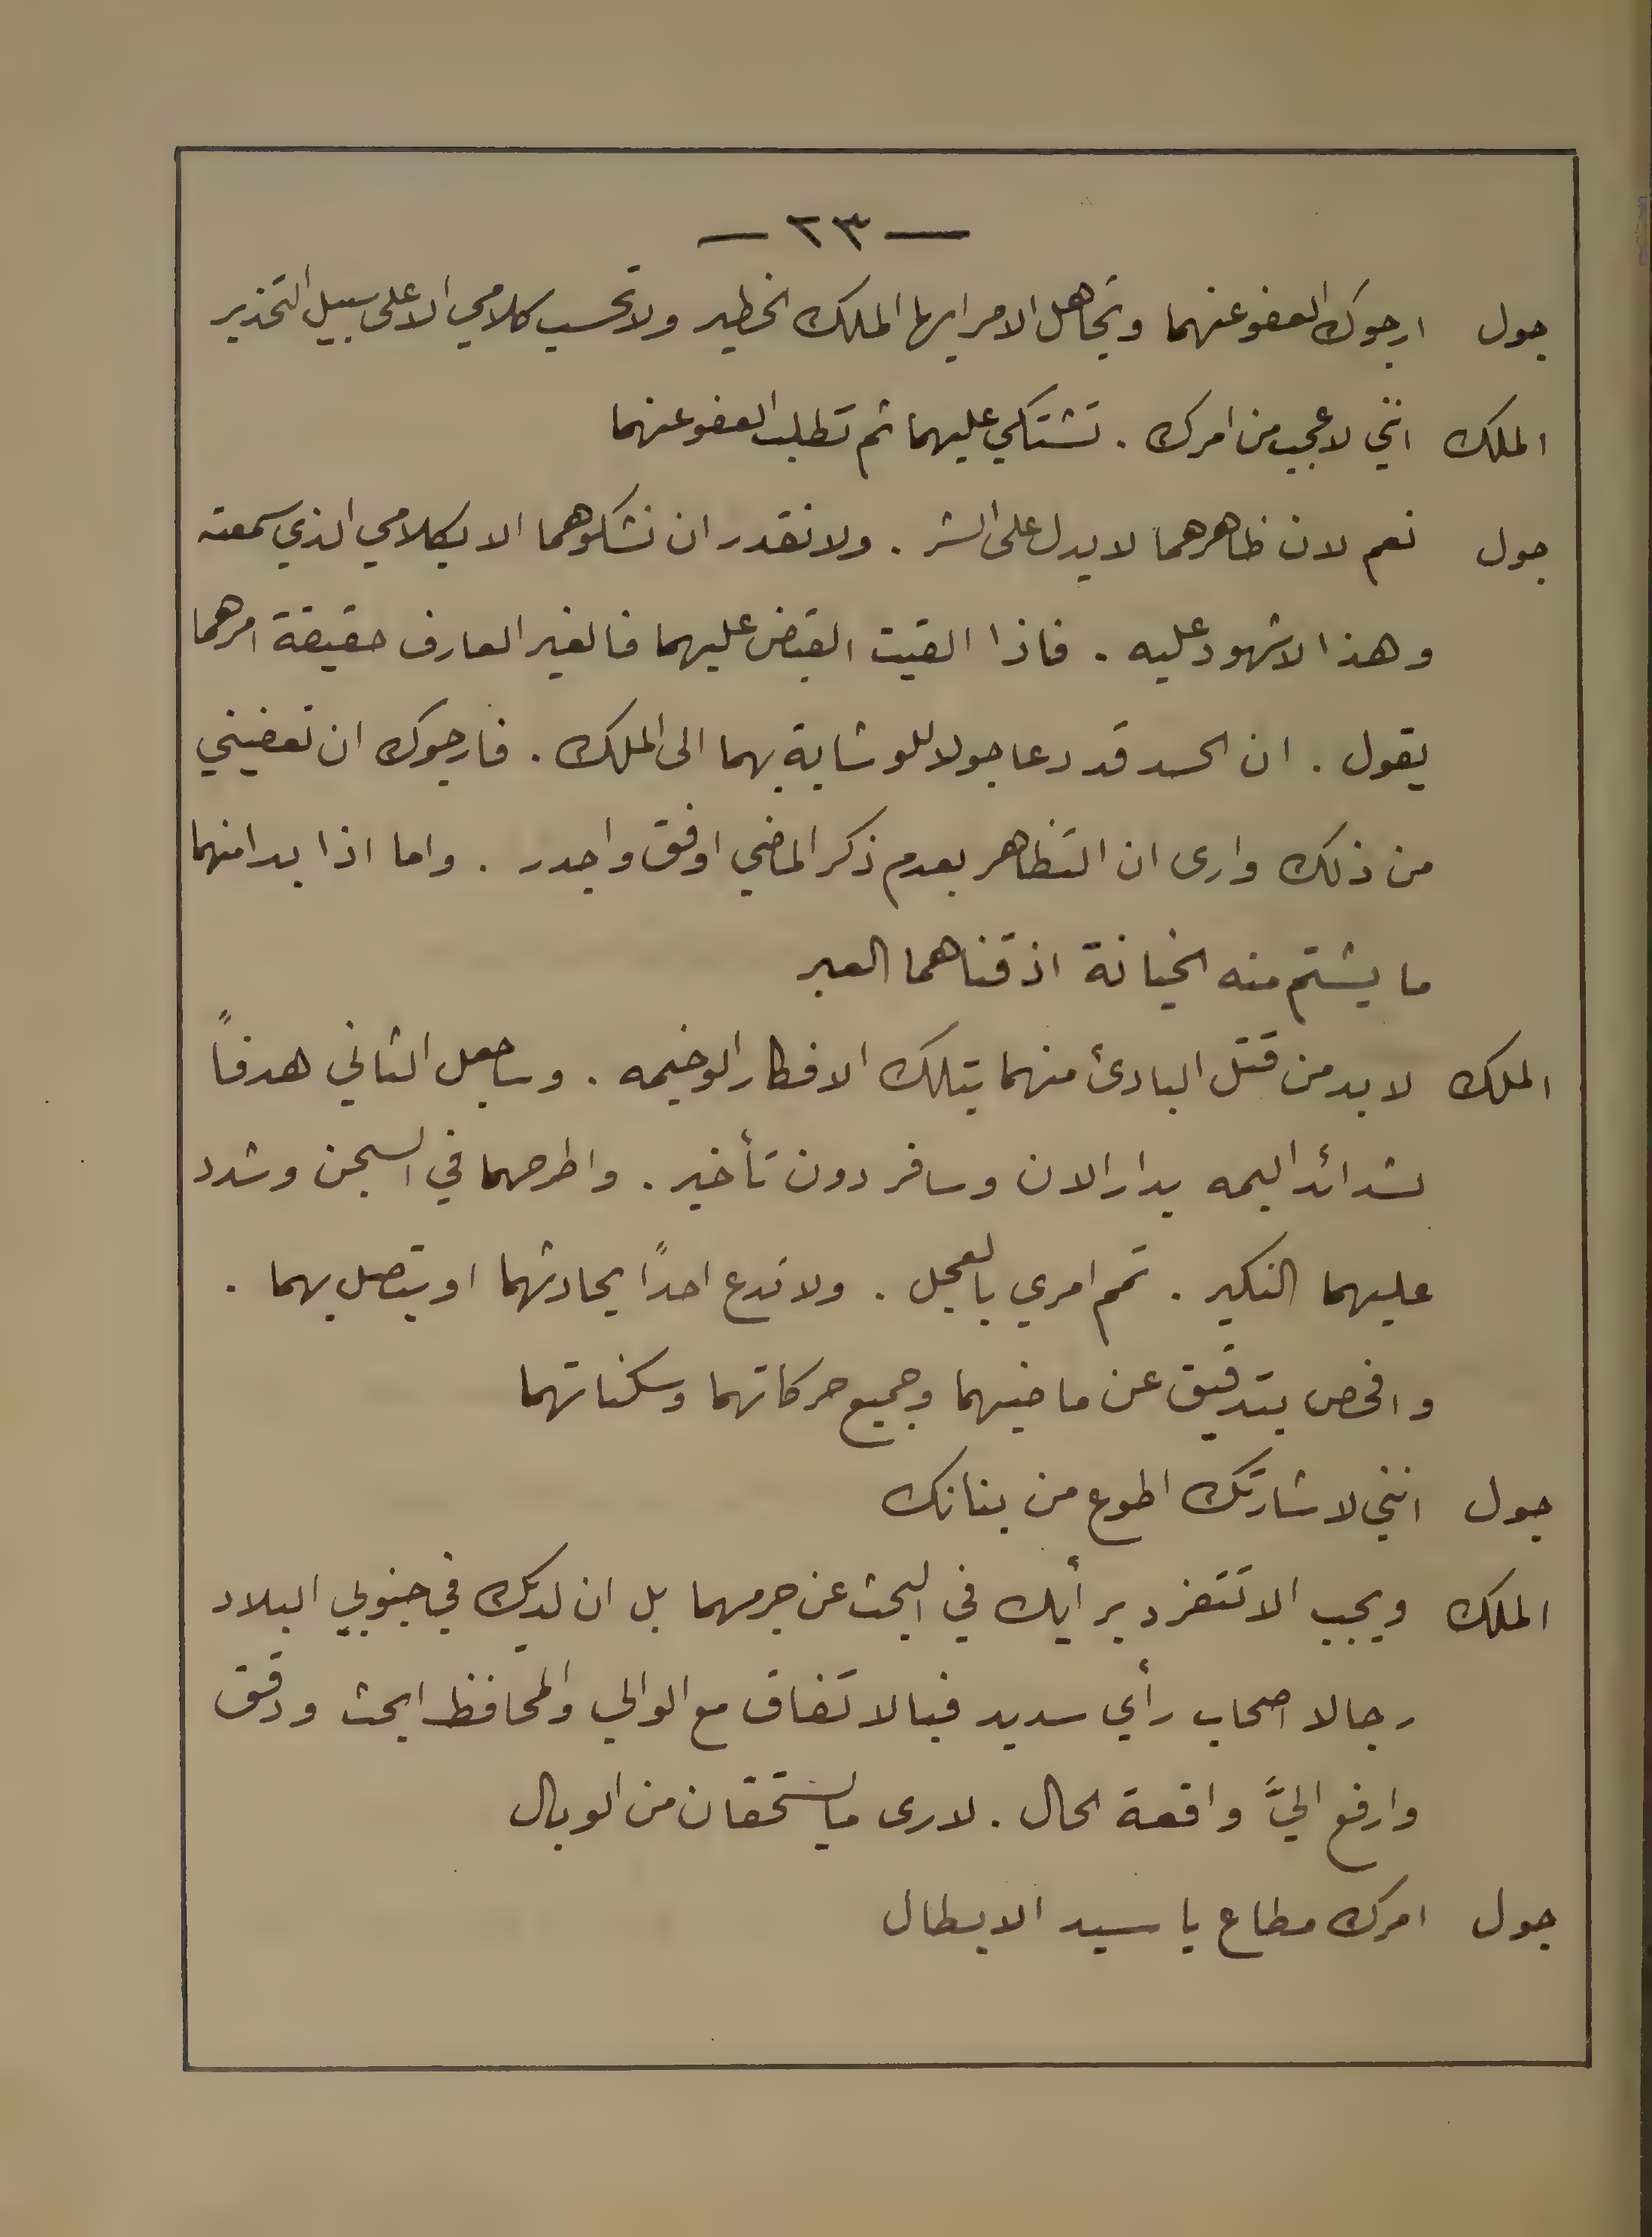 — ٢٣ —
جول ارجوك العفو عنهما وتجاهل الامر ايها الملك الخطير ولا تحسب كلامي الا على سبيل التحذير
الملك انني لاعجب من امرك . تشتكي عليهما ثم تطلب العفو عنهما
جول نعم لان ظاهرهما لا يدل على الشر . ولا نقدر ان نشكوهما الا بكلامي الذي سمعته
وهذا لا شهود عليه . فاذا القيت القبض عليهما فالغير العارف حقيقة امرهما
يقول . ان الحسد قد دعا جولا للوشاية بهما الى الملك . فارجوك ان تعفيني
من ذلك وارى ان التظاهر بعدم ذكر الماضي اوفق واجدر . واما اذا بدا منهما
ما يشتم منه الخيانة اذقناهما العبر
الملك لا بد من قتل البادئ منهما بتلك الافكار الوخيمه . وساجعل الثاني هدفاً
لشدائد اليمه بدار الان وسافر دون تأخير . واطرحهما في السجن وشدد
عليهما النكير . تمم امري بالعجل . ولا تدع احداً يحادثهما او يتصل بهما .
وافحص بتدقيق عن ماضيهما وجميع حركاتهما وسكناتهما
جول انني لاشارتك اطوع من بنانك
الملك ويجب الا تتفرد برأيك في البحث عن جرمهما بل ان لديك في جنوبي البلاد
رجالا اصحاب رأي سديد فبالاتفاق مع الوالي والمحافظ ابحث ودقق
وارفع اليَّ واقعة الحال . لارى ما يستحقان من الوبال
جول امرك مطاع يا سيد الابطال